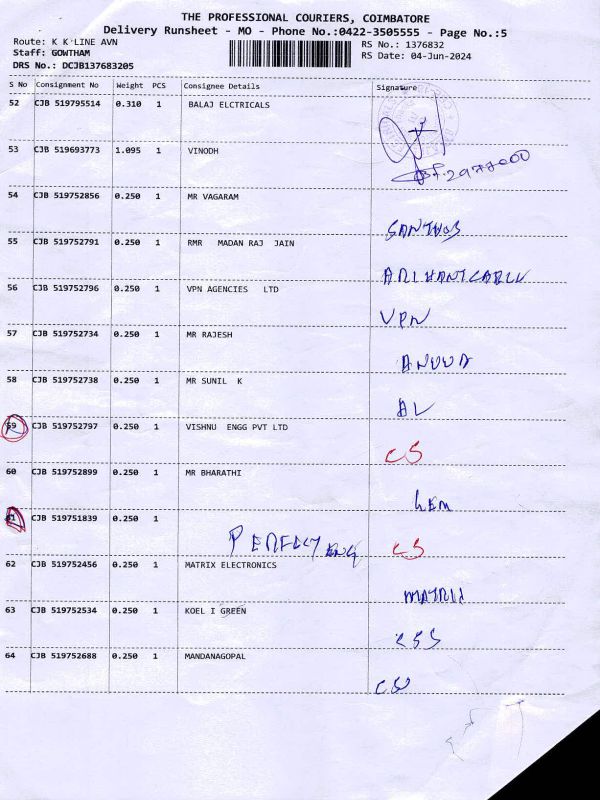 THE PROFESSIONAL COURIERS, COIMBATORE
Delivery Runsheet - MO - Phone No.:0422-3505555 - Page No.:5
Route: K K LINE AVN
RS No.: 1376832
Staff: GOWTHAM
RS Date: 04-Jun-2024
DRS No.: DCJB137683205
S No Consignment No Weight PCS Consignee Details Signature
52 CJB 519795514 0.310 1 BALAJ ELCTRICALS
53 CJB 519693773 1.095 1 VINODH
54 CJB 519752856 0.250 1 MR VAGARAM
SANTHOS
55 CJB 519752791 0.250 1 RMR MADAN RAJ JAIN
56 CJB 519752796 0.250 1 VPN AGENCIES LTD
VPN
57 CJB 519752734 0.250 1 MR RAJESH
58 CJB 519752738 0.250 1 MR SUNIL K
59 CJB 519752797 0.250 1 VISHNU ENGG PVT LTD
CS
60 CJB 519752899 0.250 1 MR BHARATHI
61 CJB 519751839 0.250 1
PERFECT ENG CS
62 CJB 519752456 0.250 1 MATRIX ELECTRONICS
MATRIX
63 CJB 519752534 0.250 1 KOEL I GREEN
64 CJB 519752688 0.250 1 MANDANAGOPAL